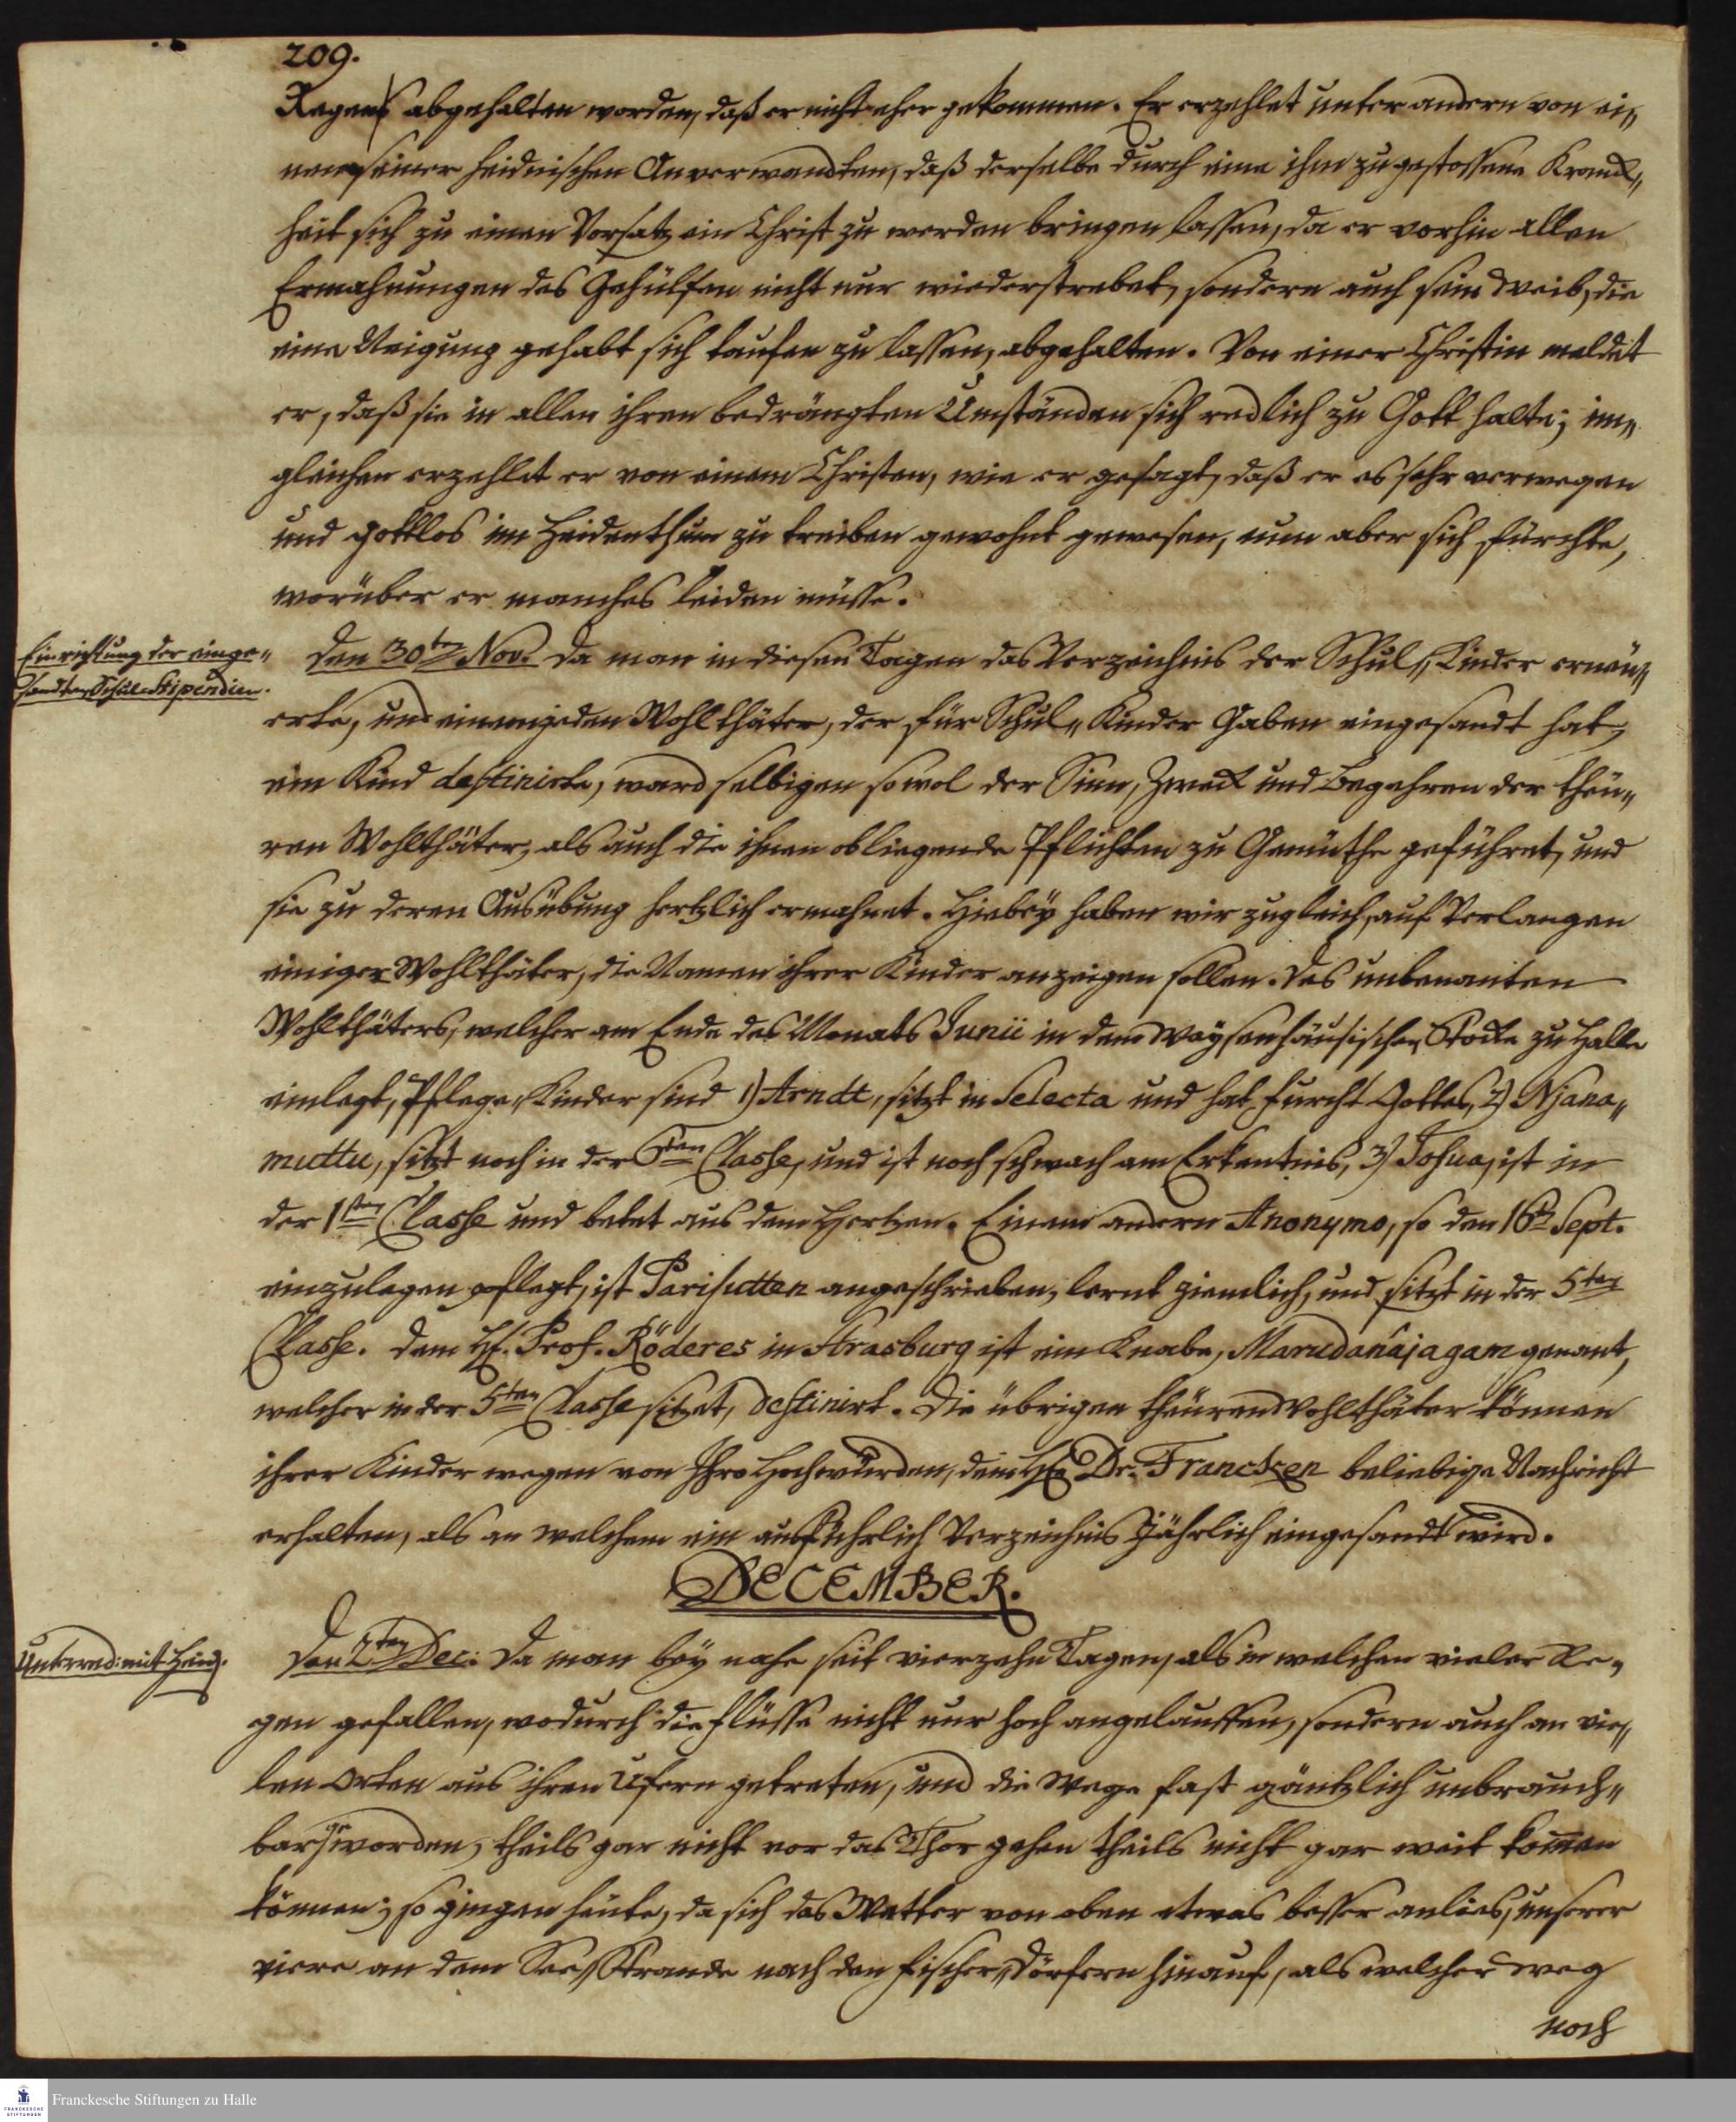 209.
Regens abgehalten worden, daß er nicht eher gekommen. Er erzehlet unter andern von ei„
nem seiner heidnischen Anverwandten, daß derselbe durch eine ihm zugestossene Kranck„
heit sich zu einen Vorsatz ein Christ zu werden bringen lassen, da er vorhin allen
Ermahnungen des Gehülfen nicht nur wiederstrebet, sondern auch sein Weib, die
eine Neigung gehabt sich taufen zu lassen, abgehalten. Von einer Christin meldet
er, daß sie in allen ihren bedrängten Umständen sich redlich zu Gott halte; im„
gleichen erzehlet er von einem Christen, wie er gesagt, daß er es sehr verwegen
und gottlos im Heidenthum zu treiben gewohnt gewesen, nun aber sich fürchte,
worüber er manches leiden müsse.
Einrichtung der einge„
sandten Schul-Stipendien.
Den 30ten Nov. Da man in diesen Tagen das Verzeichnis der Schul„Kinder erneu„
erte, und einem jeden Wohlthäter, der für Schul„Kinder Gaben eingesandt hat,
ein Kind destinirte, ward selbigen sowol der Sinn, Zweck und Begehren der theu„
ren Wohlthäter, als auch die ihnen obliegende Pflichten zu Gemüthe geführet, und
sie zu deren Ausübung hertzlich ermahnet. Hiebey haben wir zugleich, auf Verlangen
einiger Wohlthäter, die Namen ihrer Kinder anzeigen sollen. Des unbenanten
Wohlthäters, welcher am Ende des Monats Junii in dem Waysenhäusischen Stocke zu Halle
einlegt, Pflege„Kinder sind 1) Arndt, sitzt in Selecta und hat Furcht Gottes, 2) Njana„
muttu, sitzt noch in der 6ten Classe, und ist noch schwach am Erkentnis, 3) Josua, ist in
der 1sten Classe und betet aus dem Hertzen. Einem andern Anonymo, so den 16ten Sept.
einzulegen pflegt, ist Parisutten angeschrieben, lernt ziemlich, und sitzt in der 5ten
Classe. Dem H. Prof. Röderes in Strasburg ist ein Knabe, Marudanájagam genant,
welcher in der 5ten Classe sitzet, destinirt. Die übrigen theuren Wohlthäter können
ihrer Kinder wegen von Ihro Hochwürden, dem Hn Dr. Francken beliebige Nachricht
erhalten, als an welchem ein ausführlich Verzeichnis Jährlich eingesandt wird.
DECEMBER.
Unterred: mit Heid.
Den 2ten Dec: Da man bey nahe seit vierzehn Tagen, als in welchen vieler Re„
gen gefallen, wodurch die Flüsse nicht nur hoch angelauffen, sondern auch an vie„
len Orten aus ihren Ufern getreten, und die Wege fast gäntzlich unbrauch„
bar geworden, theils gar nicht vor das Thor gehen theils nicht gar weit kommen
können; so gingen heute, da sich das Wetter von oben etwas besser anlies, unserer
viere an dem See„Strande nach den Fischer„Dörfern hinauf, als welcher Weg
noch
Franckesche Stiftungen zu Halle
FRANCKESCHE
STIFTUNGEN